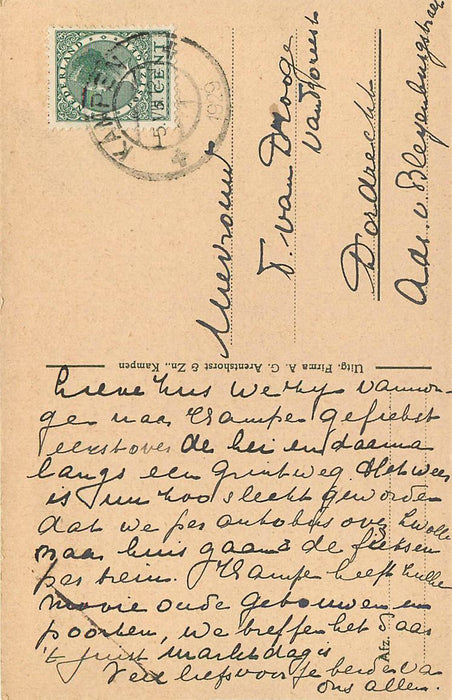 NEDERLAND
5 CENT
KAMPEN
1939
Mevrouw
v. van Drooge
van Voorst
Dordrecht
Adr. v Bleyenburgstraat
Uitg. Firma A. G. Arentshorst & Zn., Kampen
Afz.
Lieve Zus We zijn vanmor-
gen naar Kampen gefietst
eerst over de hei en daarna
langs een grintweg. Het weer
is nu zoo slecht geworden
dat we per autobus over Zwolle
naar huis gaan & de fietsen
per trein. Kampen heeft hele
mooie oude gebouwen en
poorten, we treffen het daar
't juist marktdag is
Veel liefs voor je beiden van
ons allen.